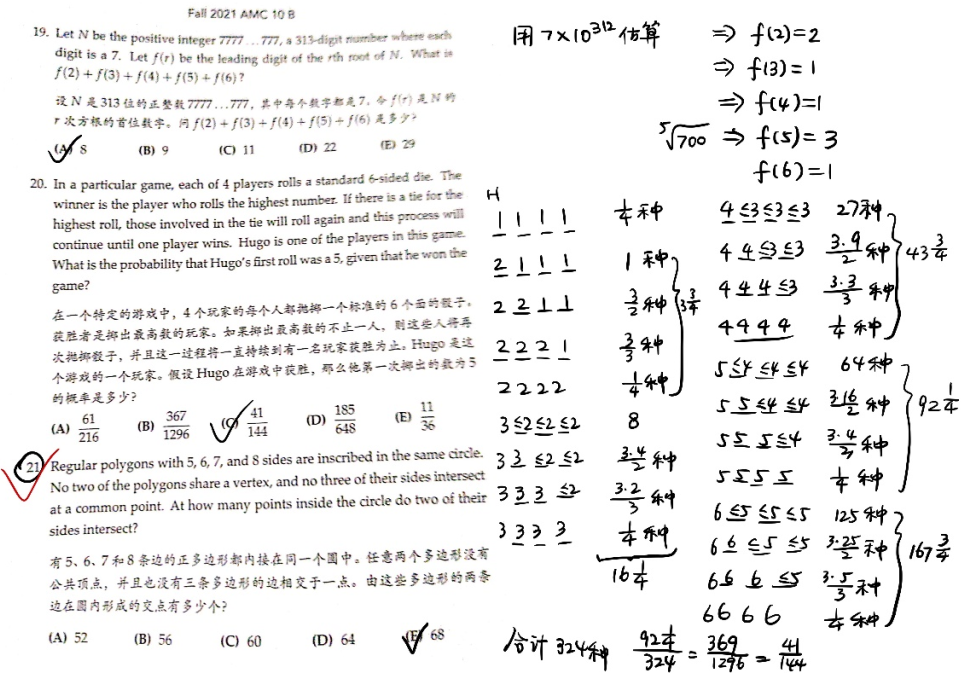 Fall 2021 AMC 10 B
19. Let N be the positive integer 7777...777, a 313-digit number where each
digit is a 7. Let f(r) be the leading digit of the rth root of N. What is
f(2) + f(3) + f(4) + f(5) + f(6)?
设 N 是 313 位的正整数 7777...777, 其中每个数字都是 7。令 f(r) 是 N 的
r 次方根的首位数字。问 f(2) + f(3) + f(4) + f(5) + f(6) 是多少?
(A) 8 (B) 9 (C) 11 (D) 22 (E) 29
20. In a particular game, each of 4 players rolls a standard 6-sided die. The
winner is the player who rolls the highest number. If there is a tie for the
highest roll, those involved in the tie will roll again and this process will
continue until one player wins. Hugo is one of the players in this game.
What is the probability that Hugo's first roll was a 5, given that he won the
game?
在一个特定的游戏中, 4 个玩家的每个人都抛掷一个标准的 6 个面的骰子。
获胜者是掷出最高数的玩家。如果掷出最高数的不止一人, 则这些人将再
次抛掷骰子, 并且这一过程将一直持续到有一名玩家获胜为止。Hugo 是这
个游戏的一个玩家。假设 Hugo 在游戏中获胜, 那么他第一次掷出的数为 5
的概率是多少?
(A) 61/216 (B) 367/1296 (C) 41/144 (D) 185/648 (E) 11/36
21. Regular polygons with 5, 6, 7, and 8 sides are inscribed in the same circle.
No two of the polygons share a vertex, and no three of their sides intersect
at a common point. At how many points inside the circle do two of their
sides intersect?
有 5、6、7 和 8 条边的正多边形都内接在同一个圆中。任意两个多边形没有
公共顶点, 并且也没有三条多边形的边相交于一点。由这些多边形的两条
边在圆内形成的交点有多少个?
(A) 52 (B) 56 (C) 60 (D) 64 (E) 68
用 7×10^312 估算 ⇒ f(2)=2
⇒ f(3)=1
⇒ f(4)=1
⁵√700 ⇒ f(5)=3
f(6)=1
H
1 1 1 1 1/4 种
2 1 1 1 1 种
2 2 1 1 3/2 种
2 2 2 1 3/3 种
2 2 2 2 1/4 种
3 3/4
3 ≤2 ≤2 ≤2 8
3 3 ≤2 ≤2 3·4/2 种
3 3 3 ≤2 3·2/3 种
3 3 3 3 1/4 种
16 1/4
4 ≤3 ≤3 ≤3 27种
4 4 ≤3 ≤3 3·9/2 种
4 4 4 ≤3 3·3/3 种
4 4 4 4 1/4 种
43 3/4
5 ≤4 ≤4 ≤4 64种
5 5 ≤4 ≤4 3·16/2 种
5 5 5 ≤4 3·4/3 种
5 5 5 5 1/4 种
92 1/4
6 ≤5 ≤5 ≤5 125种
6 6 ≤5 ≤5 3·25/2 种
6 6 6 ≤5 3·5/3 种
6 6 6 6 1/4 种
167 3/4
合计 324种 92 1/4/324 = 369/1296 = 41/144